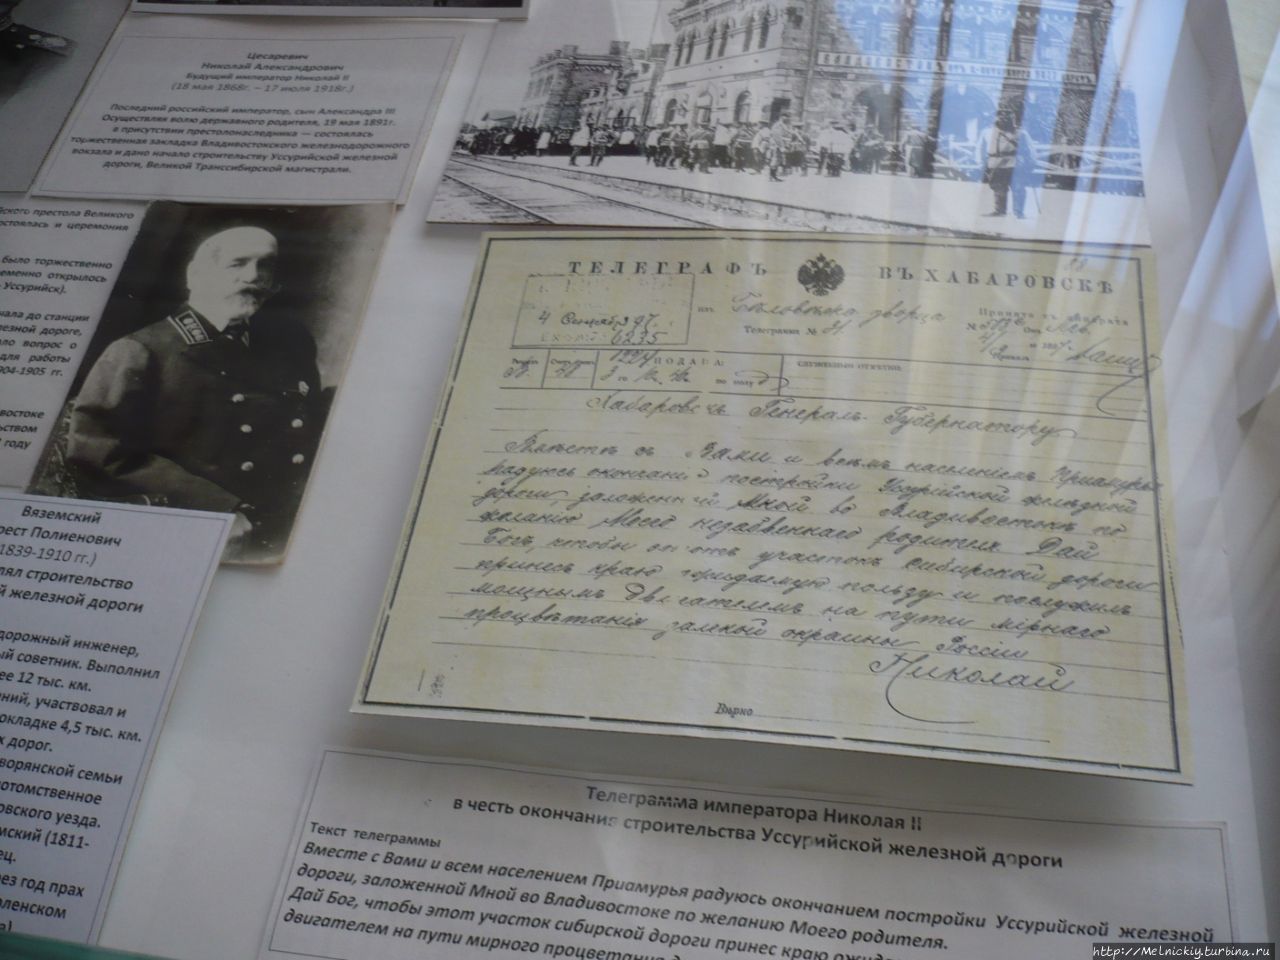 Цесаревич
Николай Александрович
Будущий император Николай II
(18 мая 1868г. – 17 июля 1918г.)
Последний российский император, сын Александра III
Осуществляя волю державного родителя, 19 мая 1891г.
в присутствии престолонаследника — состоялась
торжественная закладка Владивостокского железнодорожного
вокзала и дано начало строительству Уссурийской железной
дороги, Великой Транссибирской магистрали.
йского престола Великого
остоялась и церемония
было торжественно
ременно открылось
Уссурийск).
чала до станции
лезной дороге,
ло вопрос о
для работы
904-1905 гг.
востоке
ьством
году
Вяземский
рест Полиенович
1839-1910 гг.)
лял строительство
й железной дороги
дорожный инженер,
ый советник. Выполнил
ее 12 тыс. км.
ний, участвовал и
окладке 4,5 тыс. км.
х дорог.
ворянской семьи
потомственное
овского уезда.
мский (1811-
ец.
рез год прах
оленском
ТЕЛЕГРАФЪ ВЪ ХАБАРОВСКѢ
4 Сентября 97.
6235
изъ Бѣловѣжа дворца
Телеграмма №
ПОДАНА:
по полу
СЛУЖЕБНЫЯ ОТМѢТКИ:
Хабаровскъ Генералъ-Губернатору
Вмѣстѣ съ Вами и всѣмъ населеніемъ Приамурья
радуюсь окончанію постройки Уссурійской желѣзной
дороги, заложенной Мной во Владивостокѣ по
желанію Моего незабвеннаго родителя Дай
Богъ, чтобы этотъ участокъ Сибирской дороги
принесъ краю ожидаемую пользу и послужилъ
мощнымъ двигателемъ на пути мирнаго
процвѣтанія далекой окраины Россіи
Николай
Вѣрно
Телеграмма императора Николая II
в честь окончания строительства Уссурийской железной дороги
Текст телеграммы
Вместе с Вами и всем населением Приамурья радуюсь окончанием постройки Уссурийской железной
дороги, заложенной Мной во Владивостоке по желанию Моего родителя.
Дай Бог, чтобы этот участок сибирской дороги принес краю
двигателем на пути мирного
http://Melnickiy.turbina.ru